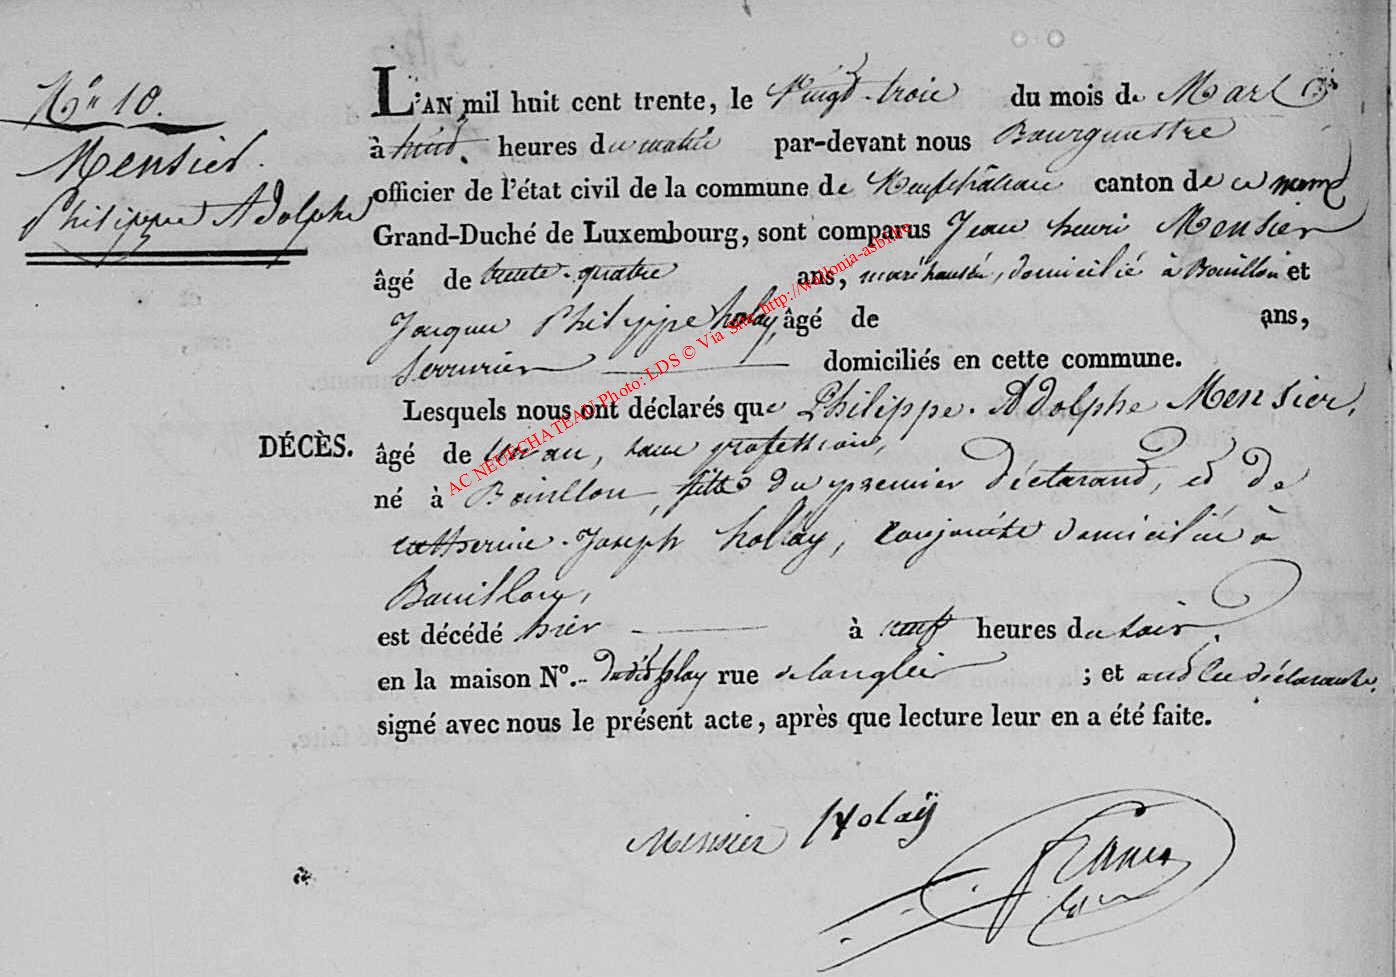 N° 10.
Mensier
Philippe Adolphe
L'AN mil huit cent trente, le Vingt-trois du mois de Mars
à huit heures du matin par-devant nous Bourgmestre
officier de l'état civil de la commune de Neufchâteau canton de ce nom
Grand-Duché de Luxembourg, sont comparus Jean henri Mensier
âgé de trente-quatre ans, maréchaussée, domicilié à Bouillon et
Jacques Philippe holay, âgé de ans,
Serrurier domiciliés en cette commune.
Lesquels nous ont déclarés que Philippe Adolphe Mensier,
DÉCÈS.
âgé de un an, sans profession,
né à Bouillon, fils du premier déclarant, et de
catherine Joseph holay, conjoints domiciliés à
Bouillon,
est décédé hier à neuf heures du soir,
en la maison N°. dudit holay rue ; et ont les déclarants
signé avec nous le présent acte, après que lecture leur en a été faite.
Mensier Holaÿ
AC NEUFCHATEAU Photo: LDS © Via Site http://wallonia-asbl.be